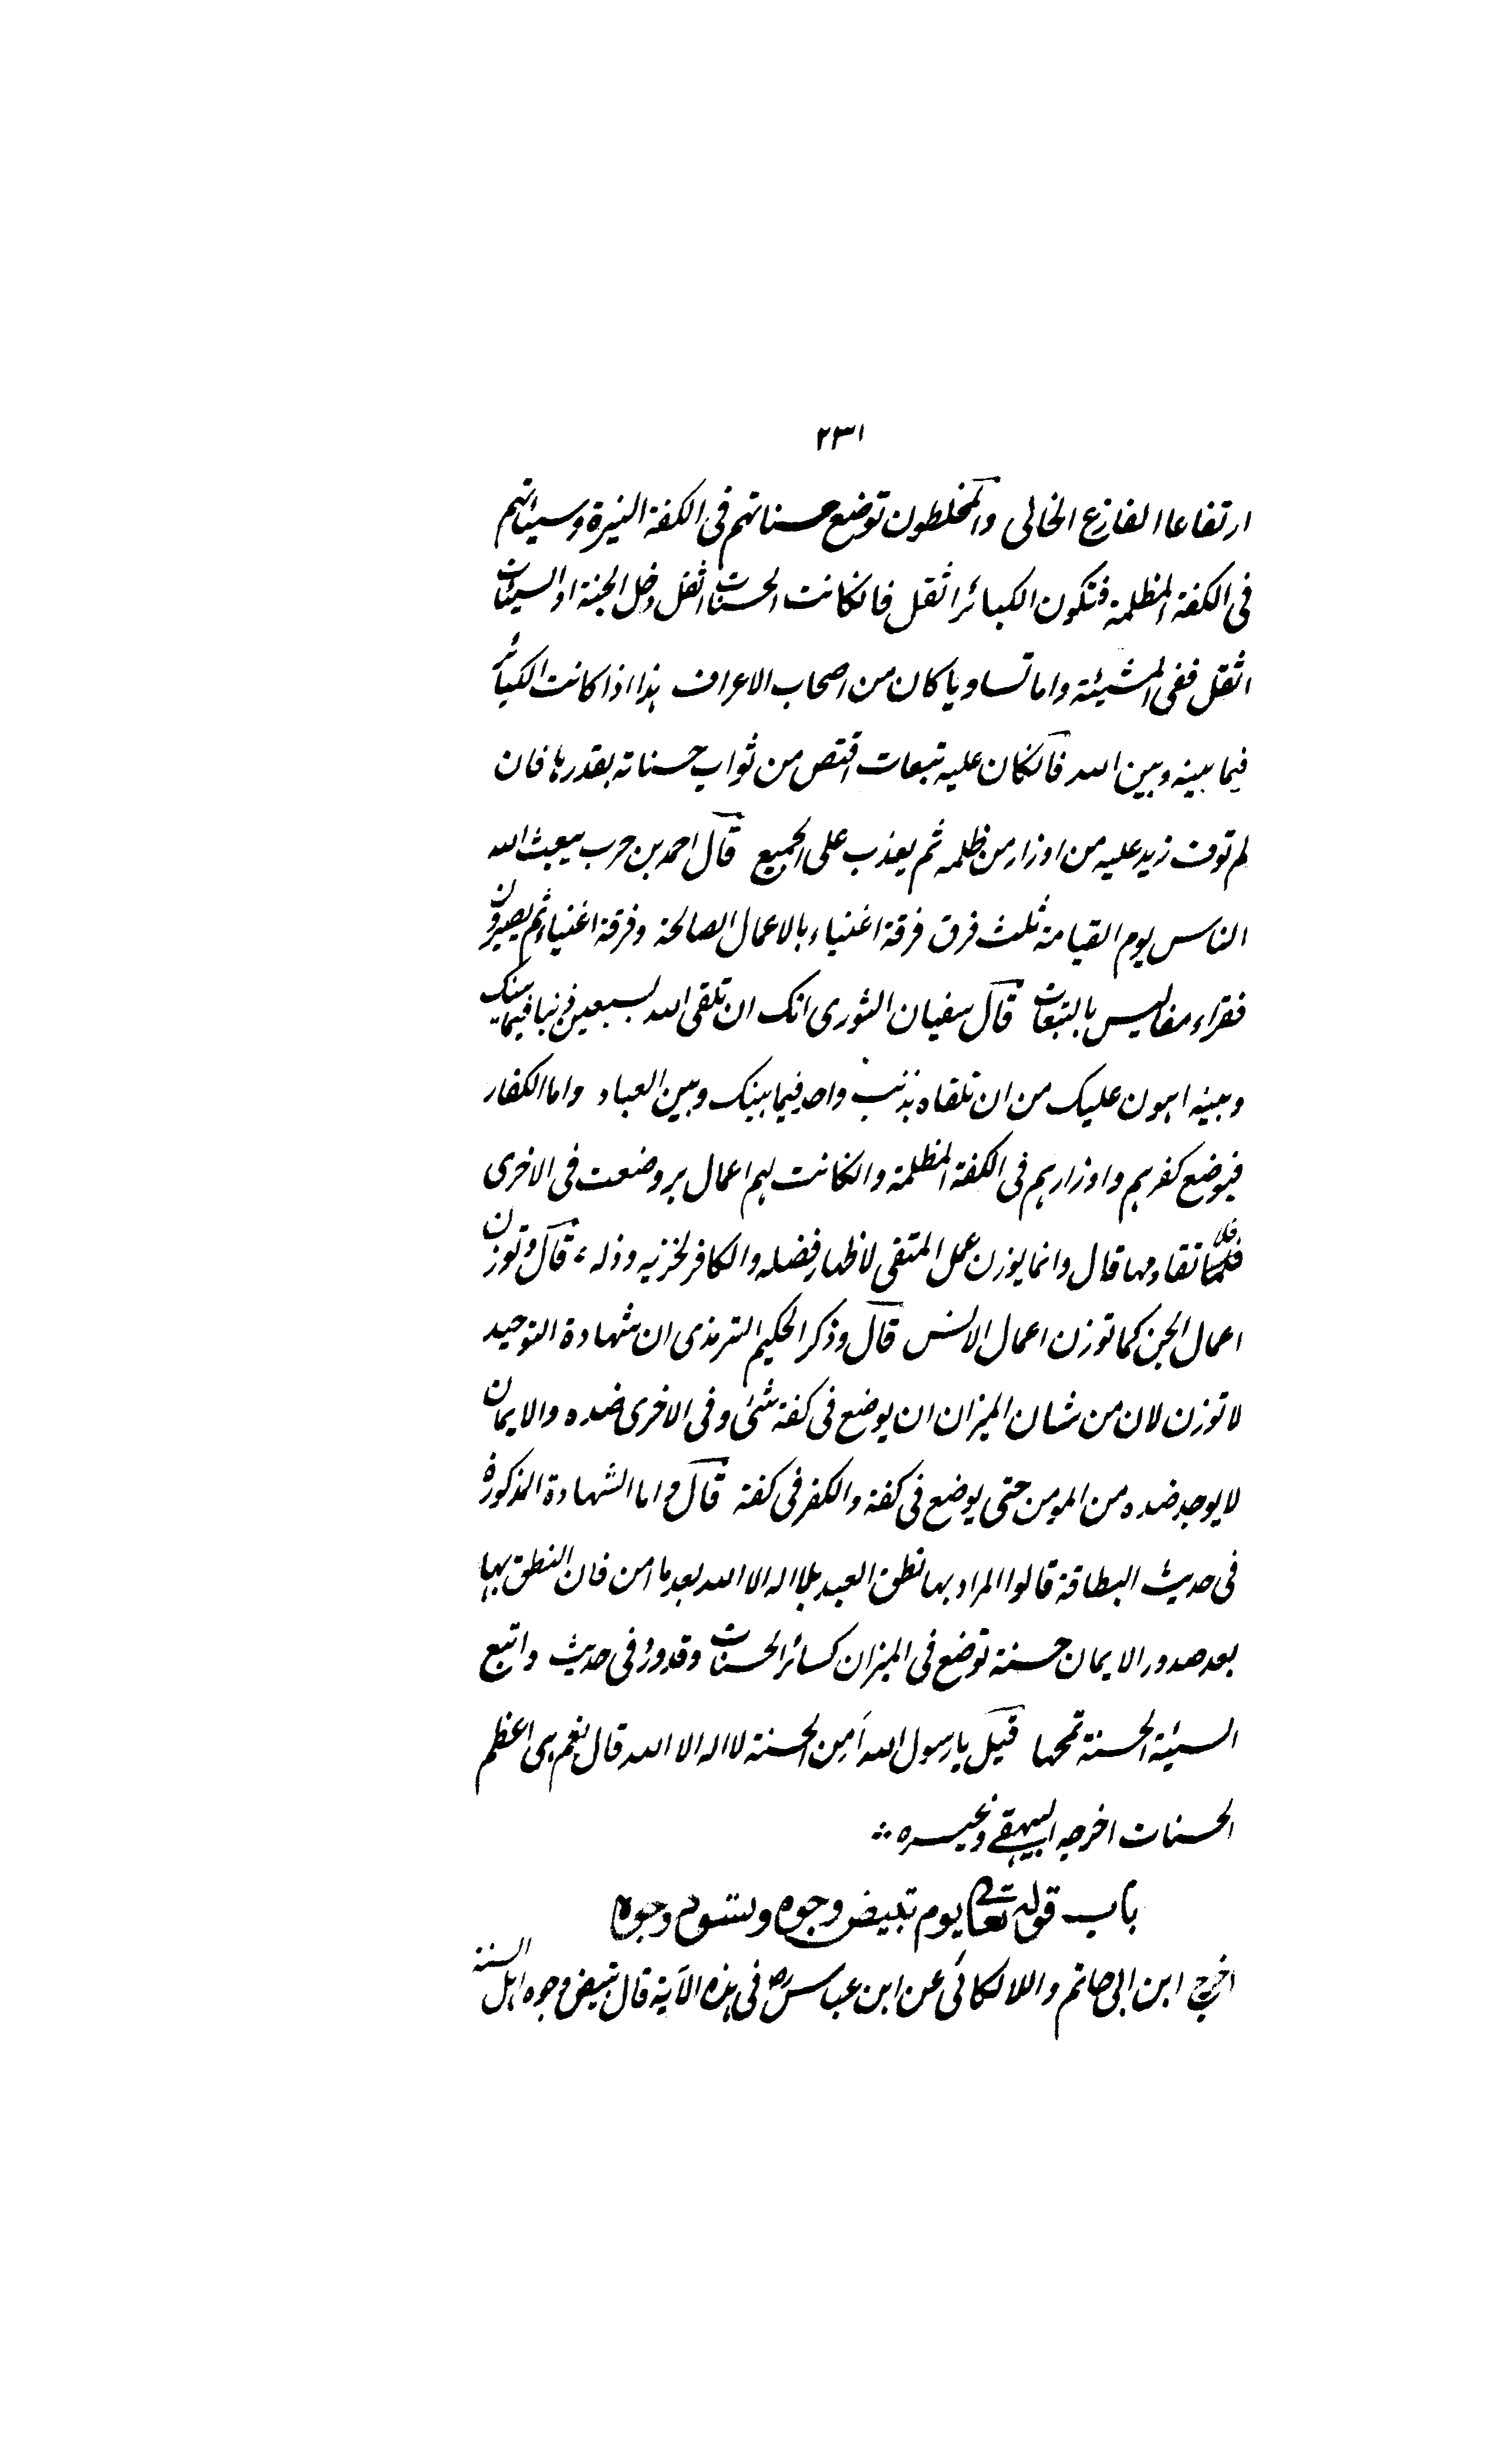 ٢٣١
ارتفاعا الفارغ الخالی والمخلطون توضع حسناتهم فی الکفة النیرة وسیئاتهم
فی الکفة المظلمة فتکون الکبائر اثقل فانکانت الحسنات اثقل دخل الجنة او السیئات
اثقل ففی المشیئة واما تساویا کان من اصحاب الاعراف هذا اذا کانت الکبائر
فیما بینه وبین الله فانکان علیه تبعات اقتص من ثواب حسناته بقدرها فان
لم توف زید علیه من اوزار من ظلمه ثم یعذب علی الجمیع قال احمد بن حرب یبعث الله
الناس یوم القیامة ثلث فرق فرقة اغنیاء بالاعمال الصالحة وفرقة اغنیاء ثم یصیرون
فقراء مفالیس بالتبعات قال سفیان الثوری انک ان تلقی الله بسبعین ذنبا فیما بینک
وبینه اهون علیک من ان تلقاه بذنب واحد فیما بینک وبین العباد واما الکفار
فیوضع کفرهم واوزارهم فی الکفة المظلمة وانکانت لهم اعمال بر وضعت فی الاخری
فلا تقاومها قال وانما یوزن عمل المتقی لاظهار فضله والکافر لخزیه وذله قال وتوزن
اعمال الجن کما توزن اعمال الانس قال وذکر الحکیم الترمذی ان شهادة التوحید
لا توزن لان من شان المیزان ان یوضع فی کفة شئ وفی الاخری ضده والایمان
لا یوجد ضده من المومن حتی یوضع فی کفة والکفر فی کفة قال واما الشهادة المذکورة
فی حدیث البطاقة قالوا المراد بها نطق العبد بلا اله الا الله بعد ما امن فان النطق بها
بعد صدور الایمان حسنة توضع فی المیزان کسائر الحسنات وقد ورد فی حدیث واتبع
السیئة الحسنة تمحها قیل یا رسول الله أمِن الحسنة لا اله الا الله قال نعم هی اعظم
الحسنات اخرجه البیهقی وغیره
باب قوله تعالی یوم تبیض وجوه وتسود وجوه
اخرج ابن ابی حاتم واللالکائی عن ابن عباس رض فی هذه الآیة قال تبیض وجوه اهل السنة